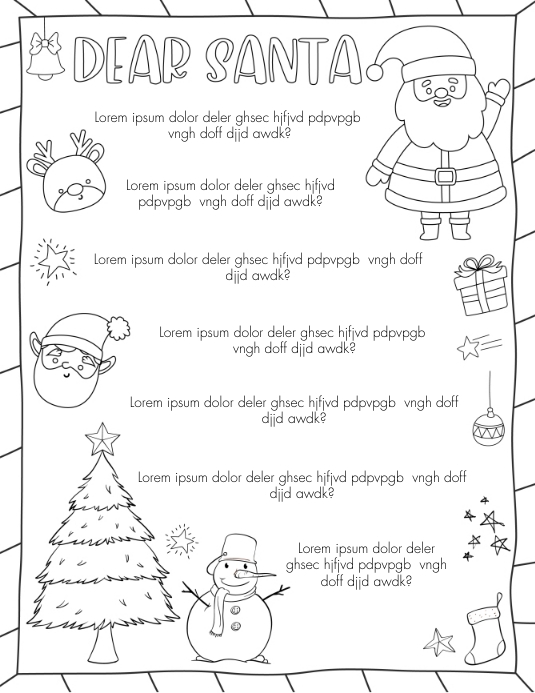 DEAR SANTA
Lorem ipsum dolor deler ghsec hjfjvd pdpvpgb
vngh doff djjd awdk?
Lorem ipsum dolor deler ghsec hjfjvd
pdpvpgb vngh doff djjd awdk?
Lorem ipsum dolor deler ghsec hjfjvd pdpvpgb vngh doff
djjd awdk?
Lorem ipsum dolor deler ghsec hjfjvd pdpvpgb
vngh doff djjd awdk?
Lorem ipsum dolor deler ghsec hjfjvd pdpvpgb vngh doff
djjd awdk?
Lorem ipsum dolor deler ghsec hjfjvd pdpvpgb vngh doff
djjd awdk?
Lorem ipsum dolor deler
ghsec hjfjvd pdpvpgb vngh
doff djjd awdk?